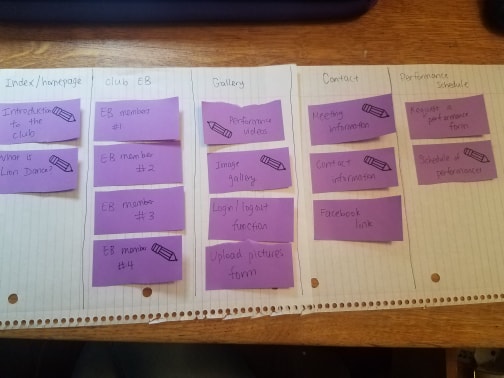 Index/homepage
Introduction
to the
club
What is
Lion Dance?
Club EB
EB member
#1
EB member
#2
EB member
#3
EB member
#4
Gallery
Performance
videos
Image
gallery
Login/logout
function
Upload pictures
form
Contact
Meeting
information
Contact
information
Facebook
link
Performance
Schedule
Request a
performance
form
Schedule of
performances